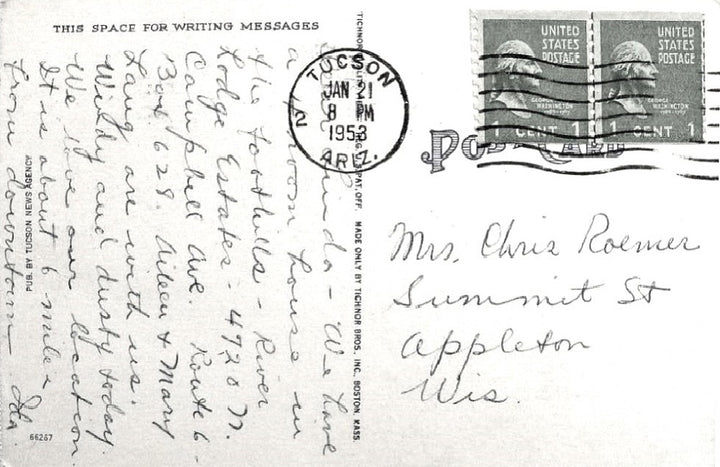 THIS SPACE FOR WRITING MESSAGES
We have
a room house in
the foothills - River
Rodge Estates - 4920 N.
Campbell Ave. Route 6 -
Box 628. Aileen & Mary
Lang are with us.
Windy and dusty today.
We love our location.
It is about 6 miles
from downtown Ida
PUB. BY TUCSON NEWS AGENCY
66267
TICHNOR PAT. OFF. MADE ONLY BY TICHNOR BROS., INC., BOSTON, MASS.
TUCSON
JAN 21
8 PM
1953
ARIZ.
2
UNITED
STATES
POSTAGE
GEORGE
WASHINGTON
1 CENT 1
UNITED
STATES
POSTAGE
GEORGE
WASHINGTON
1 CENT 1
POST CARD
Mrs. Chris Roemer
Summit St
Appleton
Wis.